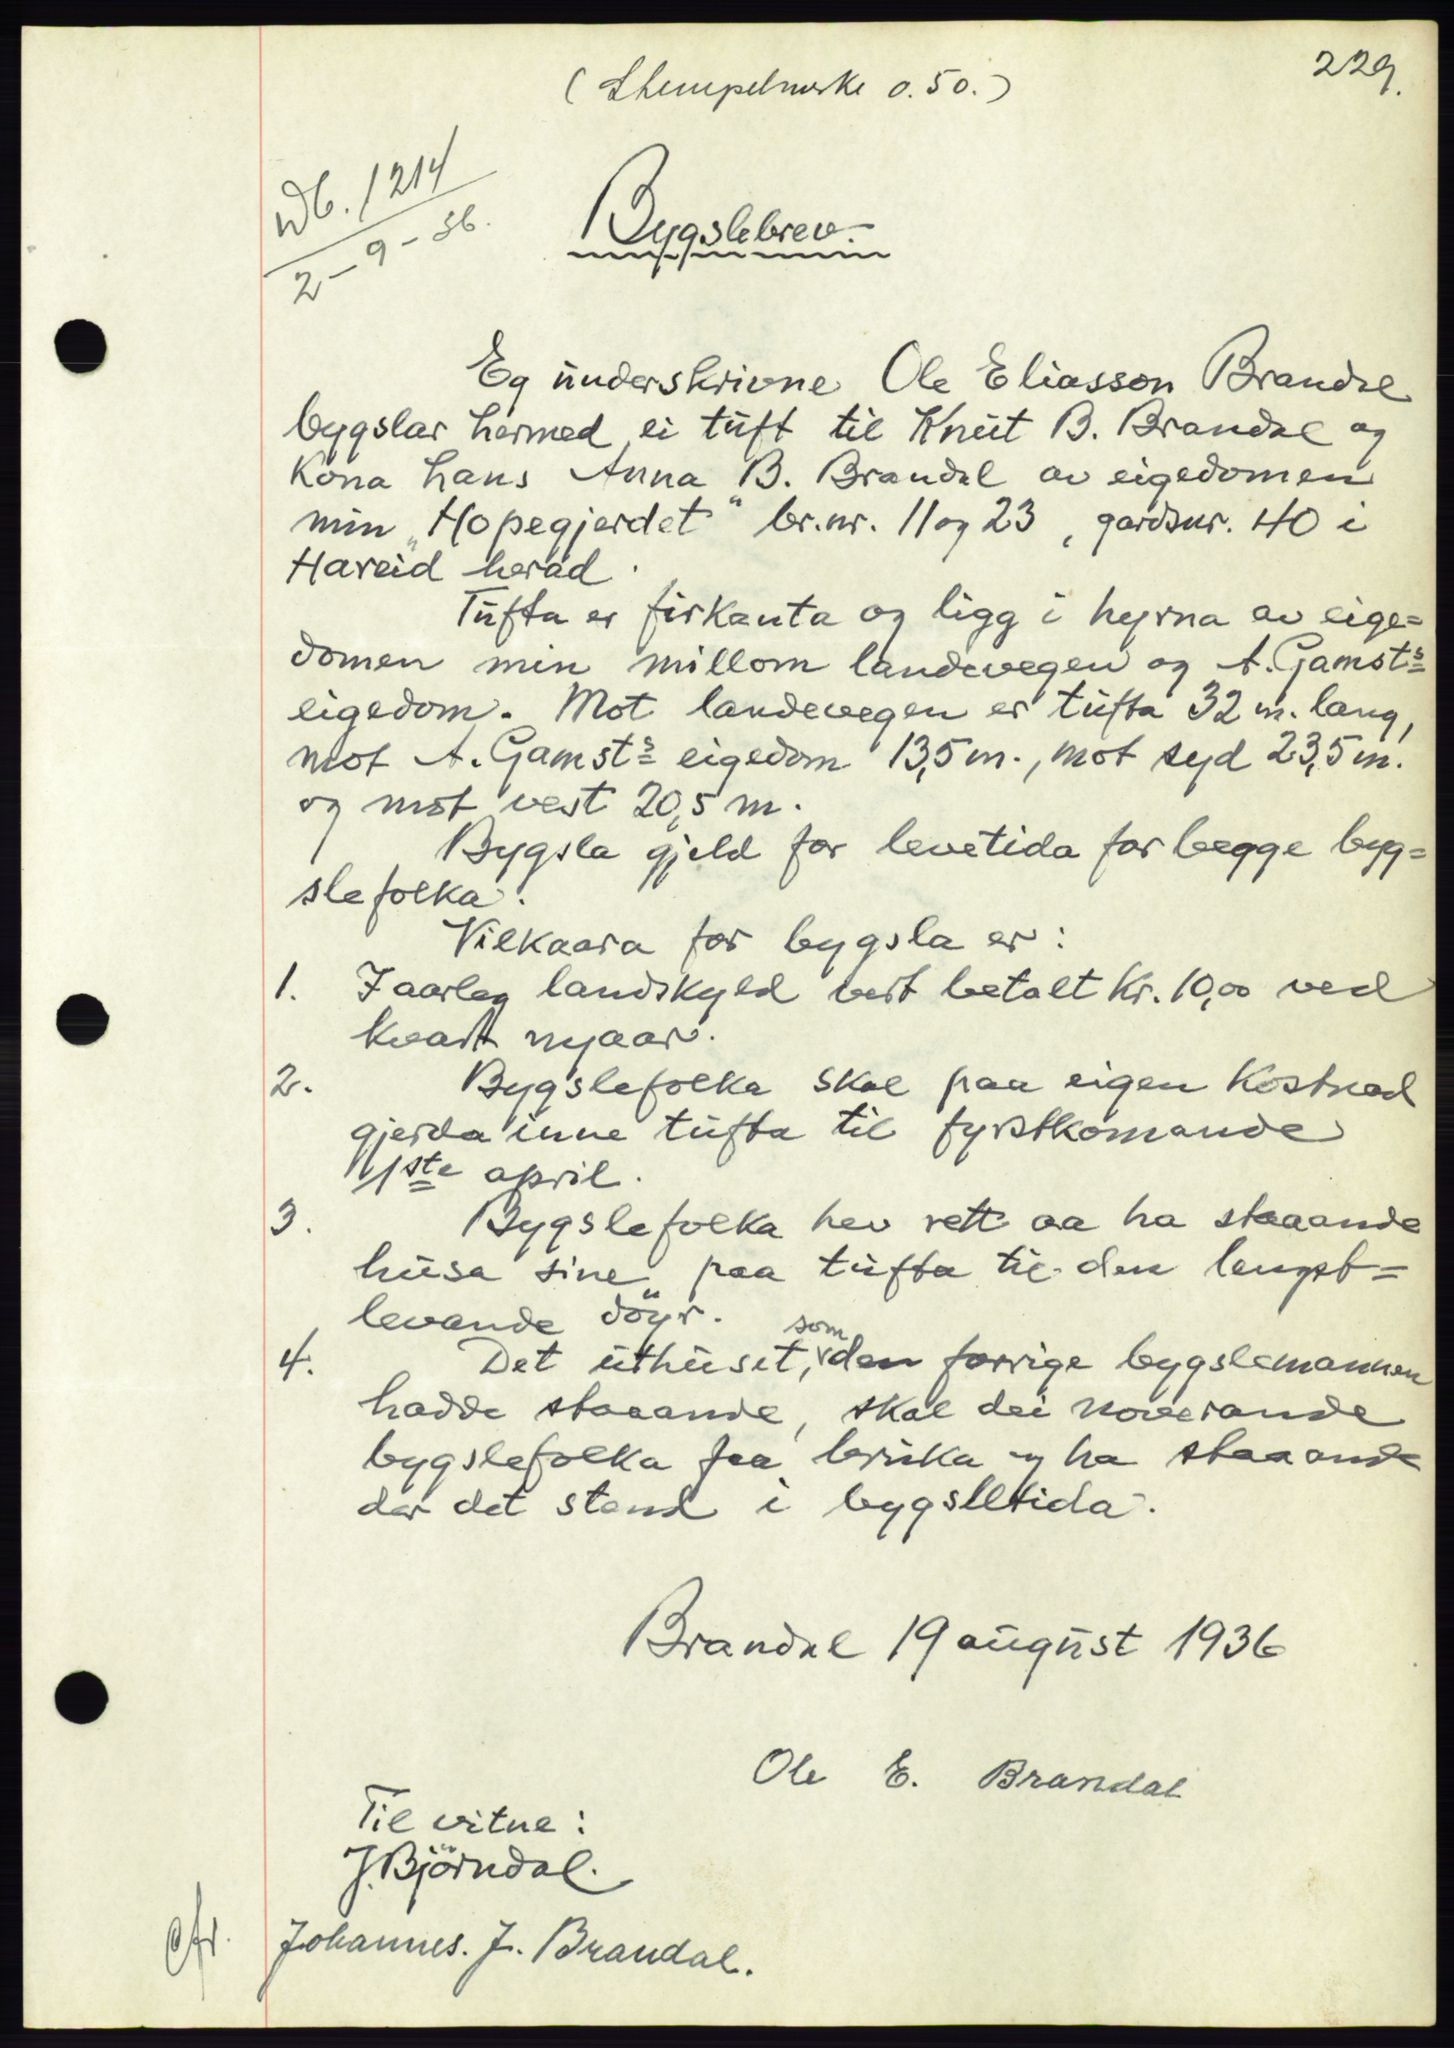 229.
(Stempelmerke 0.50.)
Db. 1214
2-9-36.
Bygslebrev.
Eg underskrivne Ole Eliasson Brandal
bygslar hermed ei tuft til Knut B. Brandal og
kona hans Anna B. Brandal av eigedomen
min „Hopegjerdet" br.nr. 11 og 23, gardsnr. 40 i
Hareid herad.
Tufta er firkanta og ligg i hyrna av eige=
domen min millom landevegen og A. Gamsts
eigedom. Mot landevegen er tufta 32 m. lang,
mot A. Gamsts eigedom 13,5 m., mot syd 23,5 m.
og mot vest 20,5 m.
Bygsla gjeld for levetida for begge byg=
slefolka.
Vilkaara for bygsla er:
1. I aarleg landskyld vert betalt Kr. 10,00 ved
kvart nyaar.
2. Bygslefolka skal paa eigen kostnad
gjerda inne tufta til fyrstkomande
1ste april.
3. Bygslefolka hev rett aa ha staaande
husa sine paa tufta til den lengst=
levande döyr.
4. Det uthuset, som den forrige bygslemannen
hadde staaande, skal dei noverande
bygslefolka faa bruka og ha staaande
der det stend i bygslltida.
Brandal 19 august 1936
Ole E. Brandal
Til vitne:
J. Björndal.
Johannes. J. Brandal.
cfr.